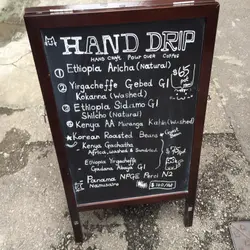 HAND DRIP
HAND CRAFT POUR OVER COFFEE
① Ethiopia Aricha (Natural)
② Yirgacheffe Gebed G1
Kokanna (Washed)
$65
③ Ethiopia Sidamo G1
Shilcho (Natural)
④ Kenya AA Muranga (Washed)
★ Korean Roasted Beans
Kenya Gachatha
Africa, washed & Sundried
Ethiopia Yirgacheffe
G1
Panama NPGE Parci N2
Natural